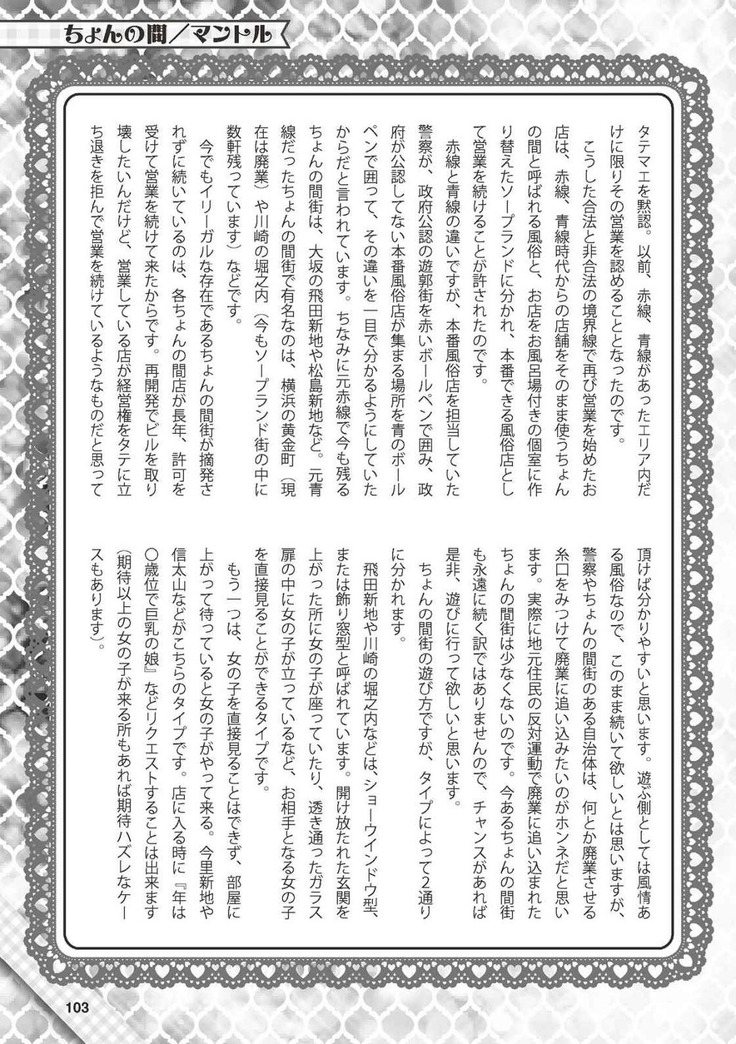 ちょんの間／マントル
タテマエを黙認。以前、赤線、青線があったエリア内だ
けに限りその営業を認めることとなったのです。
　こうした合法と非合法の境界線で再び営業を始めたお
店は、赤線、青線時代からの店舗をそのまま使うちょん
の間と呼ばれる風俗と、お店をお風呂場付きの個室に作
り替えたソープランドに分かれ、本番できる風俗店とし
て営業を続けることが許されたのです。
　赤線と青線の違いですが、本番風俗店を担当していた
警察が、政府公認の遊郭街を赤いボールペンで囲み、政
府が公認してない本番風俗店が集まる場所を青のボール
ペンで囲って、その違いを一目で分かるようにしていた
からだと言われています。ちなみに元赤線で今も残る
ちょんの間街は、大坂の飛田新地や松島新地など。元青
線だったちょんの間街で有名なのは、横浜の黄金町（現
在は廃業）や川崎の堀之内（今もソープランド街の中に
数軒残っています）などです。
　今でもイリーガルな存在であるちょんの間街が摘発さ
れずに続いているのは、各ちょんの間店が長年、許可を
受けて営業を続けて来たからです。再開発でビルを取り
壊したいんだけど、営業している店が経営権をタテに立
ち退きを拒んで営業を続けているようなものだと思って
頂ければ分かりやすいと思います。遊ぶ側としては風情あ
る風俗なので、このまま続いて欲しいとは思いますが、
警察やちょんの間街のある自治体は、何とか廃業させる
糸口をみつけて廃業に追い込みたいのがホンネだと思い
ます。実際に地元住民の反対運動で廃業に追い込まれた
ちょんの間街は少なくないのです。今あるちょんの間街
も永遠に続く訳ではありませんので、チャンスがあれば
是非、遊びに行って欲しいと思います。
　ちょんの間街の遊び方ですが、タイプによって２通り
に分かれます。
　飛田新地や川崎の堀之内などは、ショーウインドウ型、
または飾り窓型と呼ばれています。開け放たれた玄関を
上がった所に女の子が座っていたり、透き通ったガラス
扉の中に女の子が立っているなど、お相手となる女の子
を直接見ることができるタイプです。
　もう一つは、女の子を直接見ることはできず、部屋に
上がって待っていると女の子がやって来る。今里新地や
信太山などがこちらのタイプです。店に入る時に『年は
〇歳位で巨乳の娘』などリクエストすることは出来ます
（期待以上の女の子が来る所もあれば期待ハズレなケー
スもあります）。
103